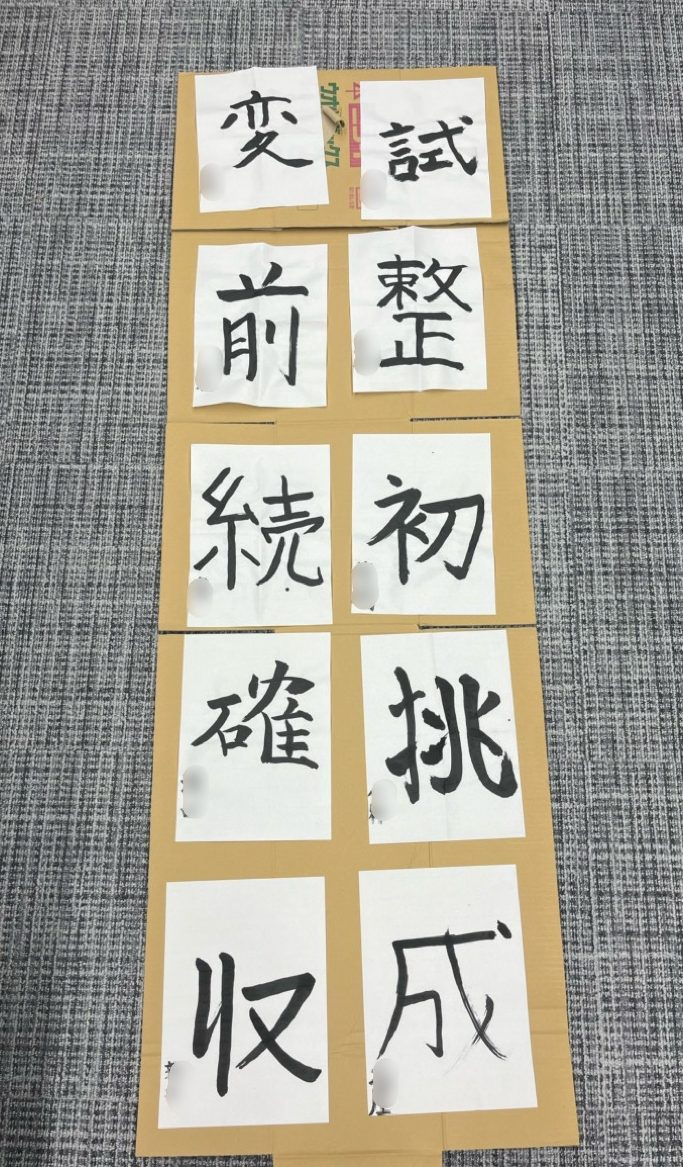 変 試
前 整
続 初
確 挑
収 成